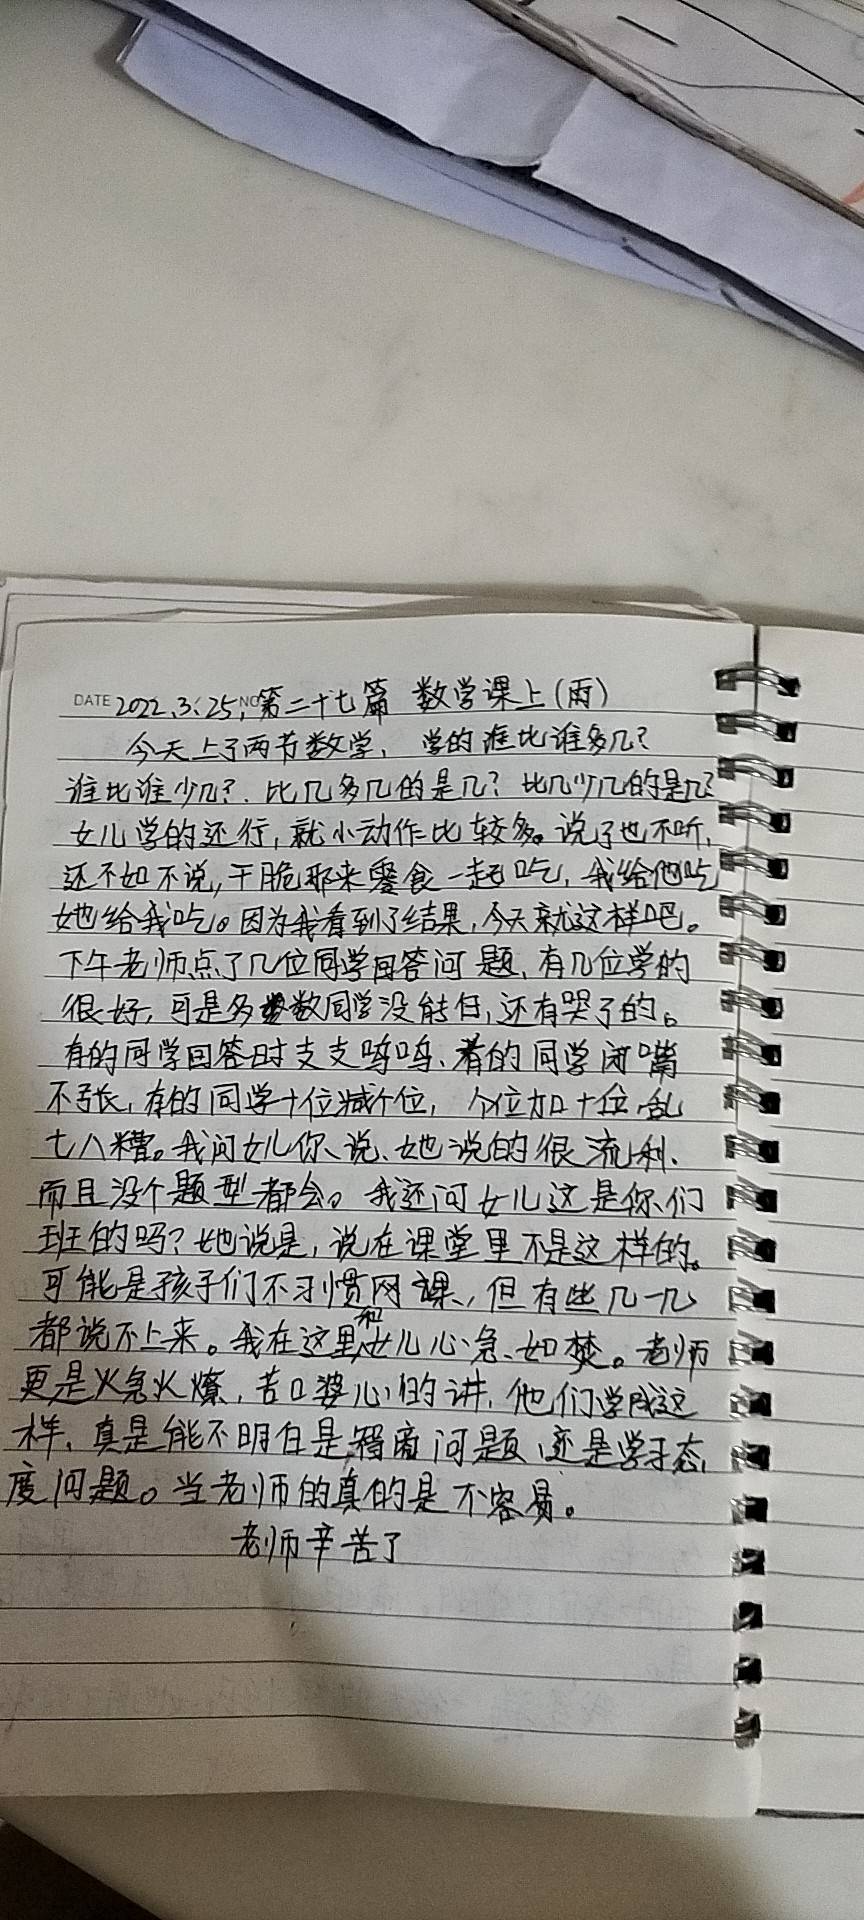 DATE 2022.3.25. NO 第二十七篇 数学课上(雨)
今天上了两节数学, 学的谁比谁多几?
谁比谁少几?. 比几多几的是几? 比几少几的是几?
女儿学的还行, 就小动作比较多。说了也不听,
还不如不说, 干脆那来零食一起吃, 我给他吃
她给我吃。因为我看到了结果, 今天就这样吧。
下午老师点了几位同学回答问题, 有几位学的
很好, 可是多数同学没能答, 还有哭了的。
有的同学回答时支支吾吾、有的同学闭嘴
不张, 有的同学十位减个位, 个位加十位, 乱
七八糟。我问女儿你说、她说的很流利、
而且没个题型都会。我还问女儿这是你们
班的吗? 她说是, 说在课堂里不是这样的。
可能是孩子们不习惯网课, 但有些几一几
都说不上来。我在这里和女儿心急如焚。老师
更是火急火燎, 苦口婆心的讲, 他们学成这
样, 真是能不明白是智商问题, 还是学习态
度问题。当老师的真的是不容易。
老师辛苦了